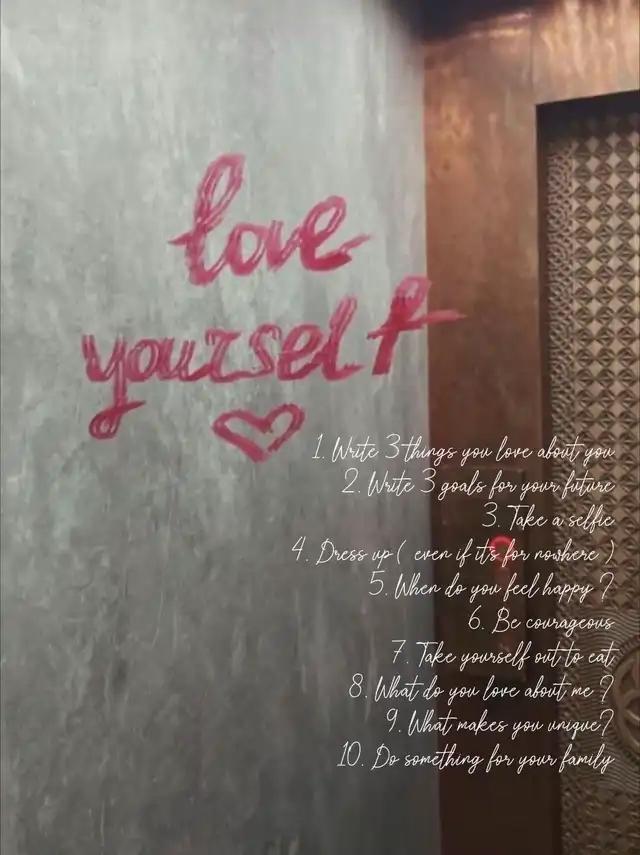 love
yourself
1. Write 3 things you love about you
2. Write 3 goals for your future
3. Take a selfie
4. Dress up ( even if it's for nowhere )
5. When do you feel happy ?
6. Be courageous
7. Take yourself out to eat
8. What do you love about me ?
9. What makes you unique?
10. Do something for your family